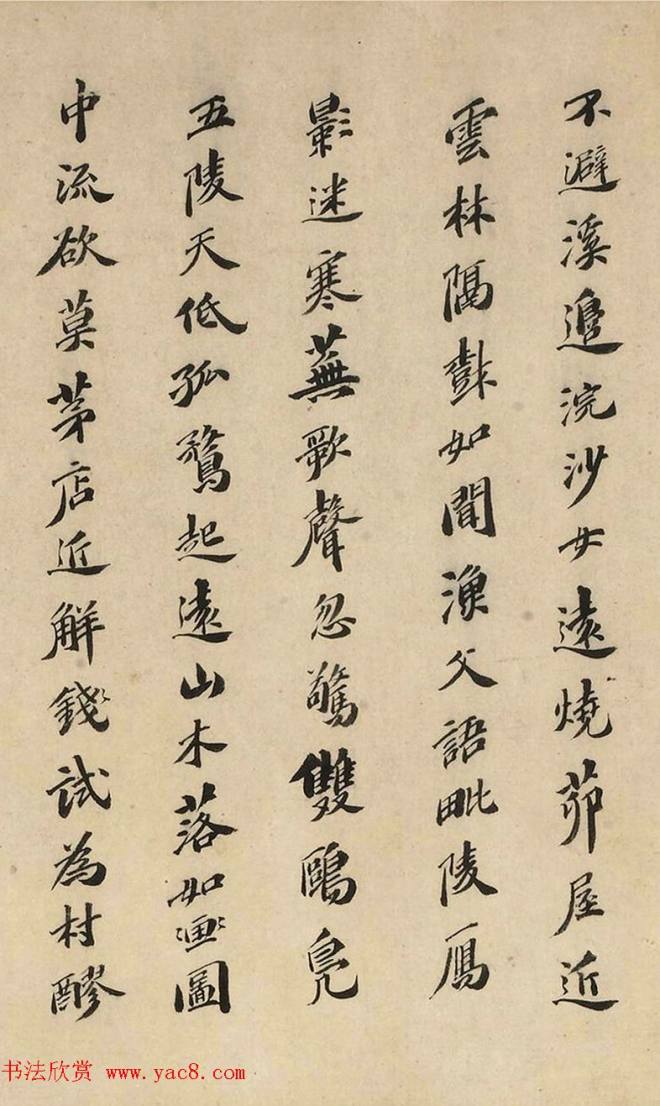 不避溪邉浣沙女遠燒茆屋近
雲林隔彭如聞漁父語毗陵鴈
影迷寒蕪歌聲忽驚雙鷗鳧
五陵天低孤鶩起遠山木落如畫圖
中流欲莫茅店近解錢試為村醪
书法欣赏 www.yac8.com